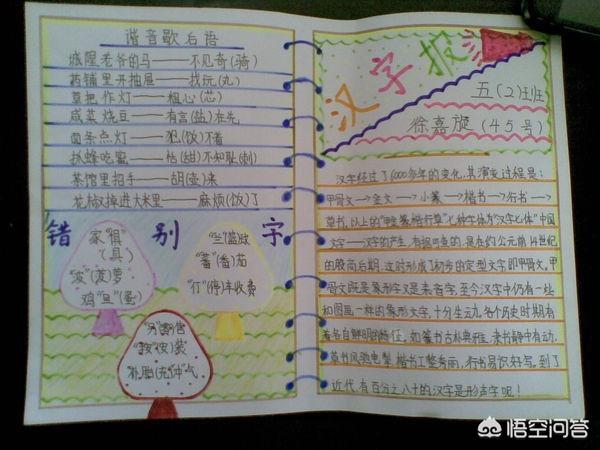 谐音歇后语
城隍老爷的马——不见奇(骑)
药铺里开抽屉——找玩(丸)
草把作灯——粗心(芯)
咸菜烧豆——有言(盐)在先
面条点灯——犯(饭)不着
扒蜂吃蜜——恬(甜)不知耻(刺)
茶馆里招手——胡(壶)来
花椒掉进大米里——麻烦(饭)了
错别字
家"俱"
(具)
"波"(菠)萝
鸡"旦"(蛋)
"兰"(蓝)球
"蕃"(番)茄
"仃"(停)车收费
"按"(安)装
补胎"冲"气
汉字报
五(2)班
徐嘉旋(45号)
汉字经过了6000多年的变化,其演变过程是:
甲骨文→金文→小篆→楷书→行书→
草书,以上的"甲金篆隶楷行草"七种字体为"汉字七体"中国
文字——汉字的产生,有据可查的,是在约公元前14世纪
的殷商后期,这时形成了初步的定型文字,即甲骨文。甲
骨文既是象形字又是表音字,至今汉字中仍有一些
和图画一样的象形文字,十分生动。各个历史时期有
著各自鲜明的特征,如篆书古朴典雅,隶书静中有动,
草书风驰电掣,楷书工整秀丽,行书易识好写,到了
近代,有百分之八十的汉字是形声字呢!
悟空问答